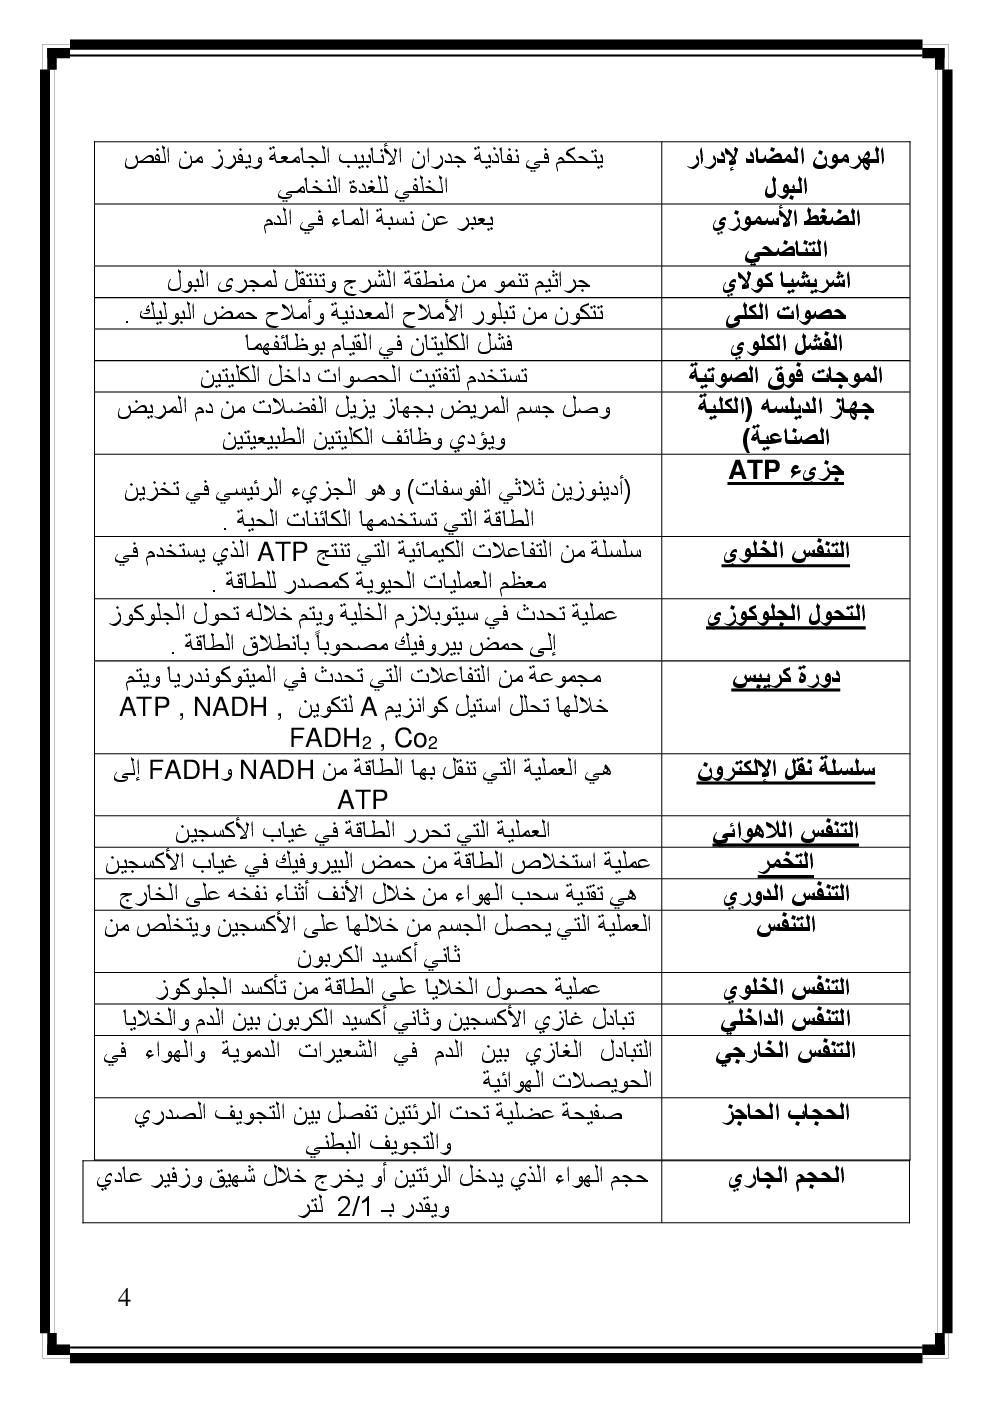 الهرمون المضاد لإدرار
البول
يتحكم في نفاذية جدران الأنابيب الجامعة ويفرز من الفص
الخلفي للغدة النخامي
الضغط الأسموزي
التناضحي
يعبر عن نسبة الماء في الدم
اشريشيا كولاي
جراثيم تنمو من منطقة الشرج وتنتقل لمجرى البول
حصوات الكلى
تتكون من تبلور الأملاح المعدنية وأملاح حمض البوليك .
الفشل الكلوي
فشل الكليتان في القيام بوظائفهما
الموجات فوق الصوتية
تستخدم لتفتيت الحصوات داخل الكليتين
جهاز الديلسه (الكلية
الصناعية)
وصل جسم المريض بجهاز يزيل الفضلات من دم المريض
ويؤدي وظائف الكليتين الطبيعيتين
جزيء ATP
(أدينوزين ثلاثي الفوسفات) وهو الجزيء الرئيسي في تخزين
الطاقة التي تستخدمها الكائنات الحية .
التنفس الخلوي
سلسلة من التفاعلات الكيمائية التي تنتج ATP الذي يستخدم في
معظم العمليات الحيوية كمصدر للطاقة .
التحول الجلوكوزي
عملية تحدث في سيتوبلازم الخلية ويتم خلاله تحول الجلوكوز
إلى حمض بيروفيك مصحوباً بانطلاق الطاقة .
دورة كريبس
مجموعة من التفاعلات التي تحدث في الميتوكوندريا ويتم
خلالها تحلل استيل كوانزيم A لتكوين ATP , NADH ,
FADH2 , Co2
سلسلة نقل الإلكترون
هي العملية التي تنقل بها الطاقة من NADH وFADH إلى
ATP
التنفس اللاهوائي
العملية التي تحرر الطاقة في غياب الأكسجين
التخمر
عملية استخلاص الطاقة من حمض البيروفيك في غياب الأكسجين
التنفس الدوري
هي تقنية سحب الهواء من خلال الأنف أثناء نفخه على الخارج
التنفس
العملية التي يحصل الجسم من خلالها على الأكسجين ويتخلص من
ثاني أكسيد الكربون
التنفس الخلوي
عملية حصول الخلايا على الطاقة من تأكسد الجلوكوز
التنفس الداخلي
تبادل غازي الأكسجين وثاني أكسيد الكربون بين الدم والخلايا
التنفس الخارجي
التبادل الغازي بين الدم في الشعيرات الدموية والهواء في
الحويصلات الهوائية
الحجاب الحاجز
صفيحة عضلية تحت الرئتين تفصل بين التجويف الصدري
والتجويف البطني
الحجم الجاري
حجم الهواء الذي يدخل الرئتين أو يخرج خلال شهيق وزفير عادي
ويقدر بـ 2/1 لتر
4